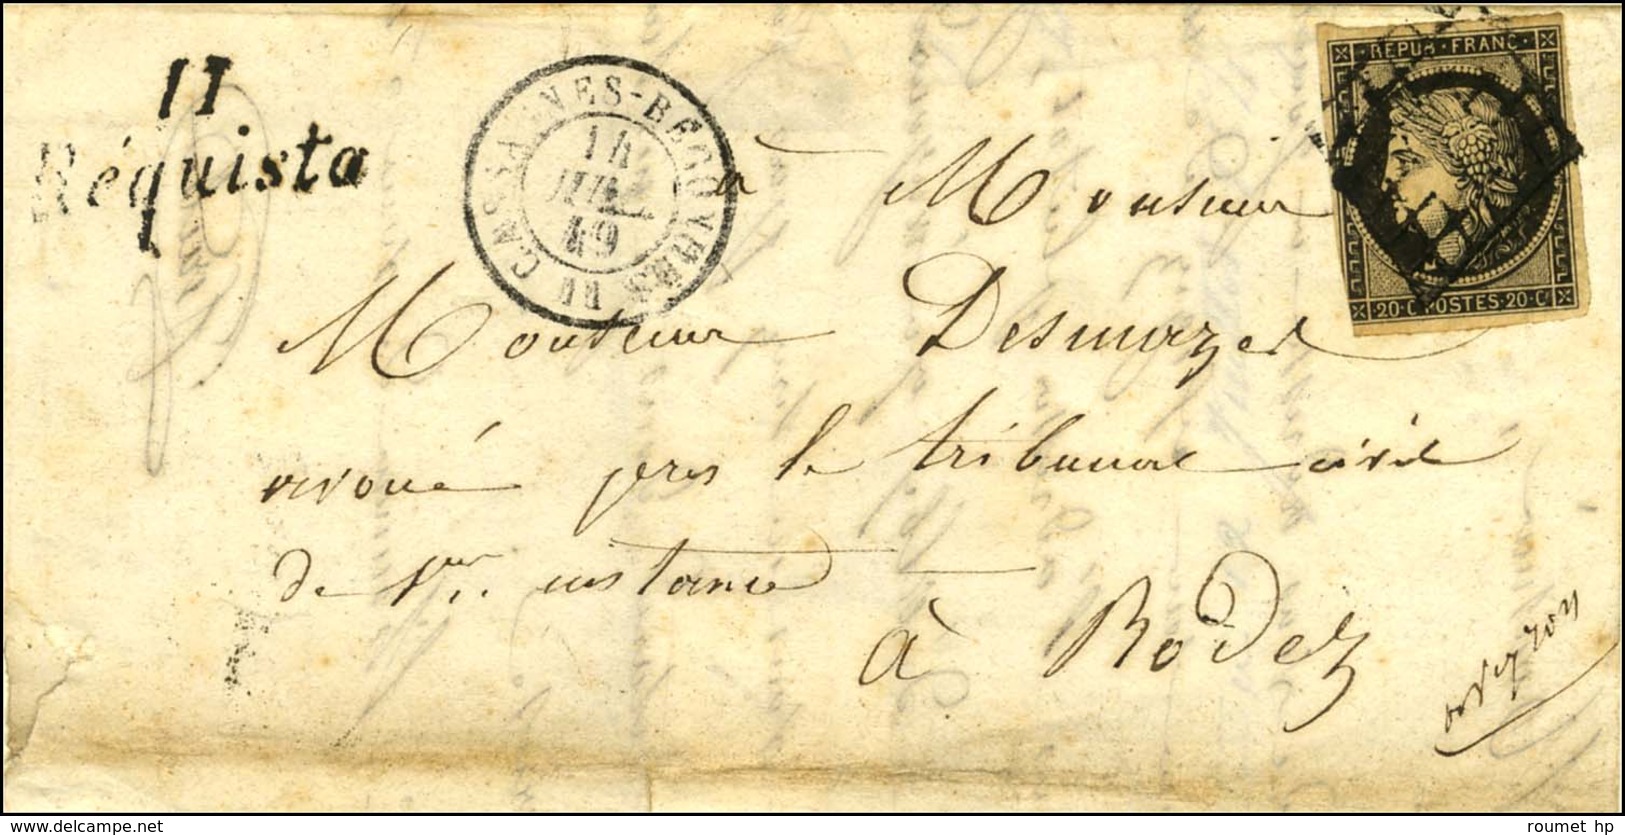 11
Réquista
CASSAGNES-BEGONHES
14
JUIL.
49
REPUB·FRANC·
20·C·POSTES·20·C
à Monsieur
Monsieur Desmazes
avoué pres le tribunal civil
de 1ere instance
à Rodez
aveyron
roumet hp